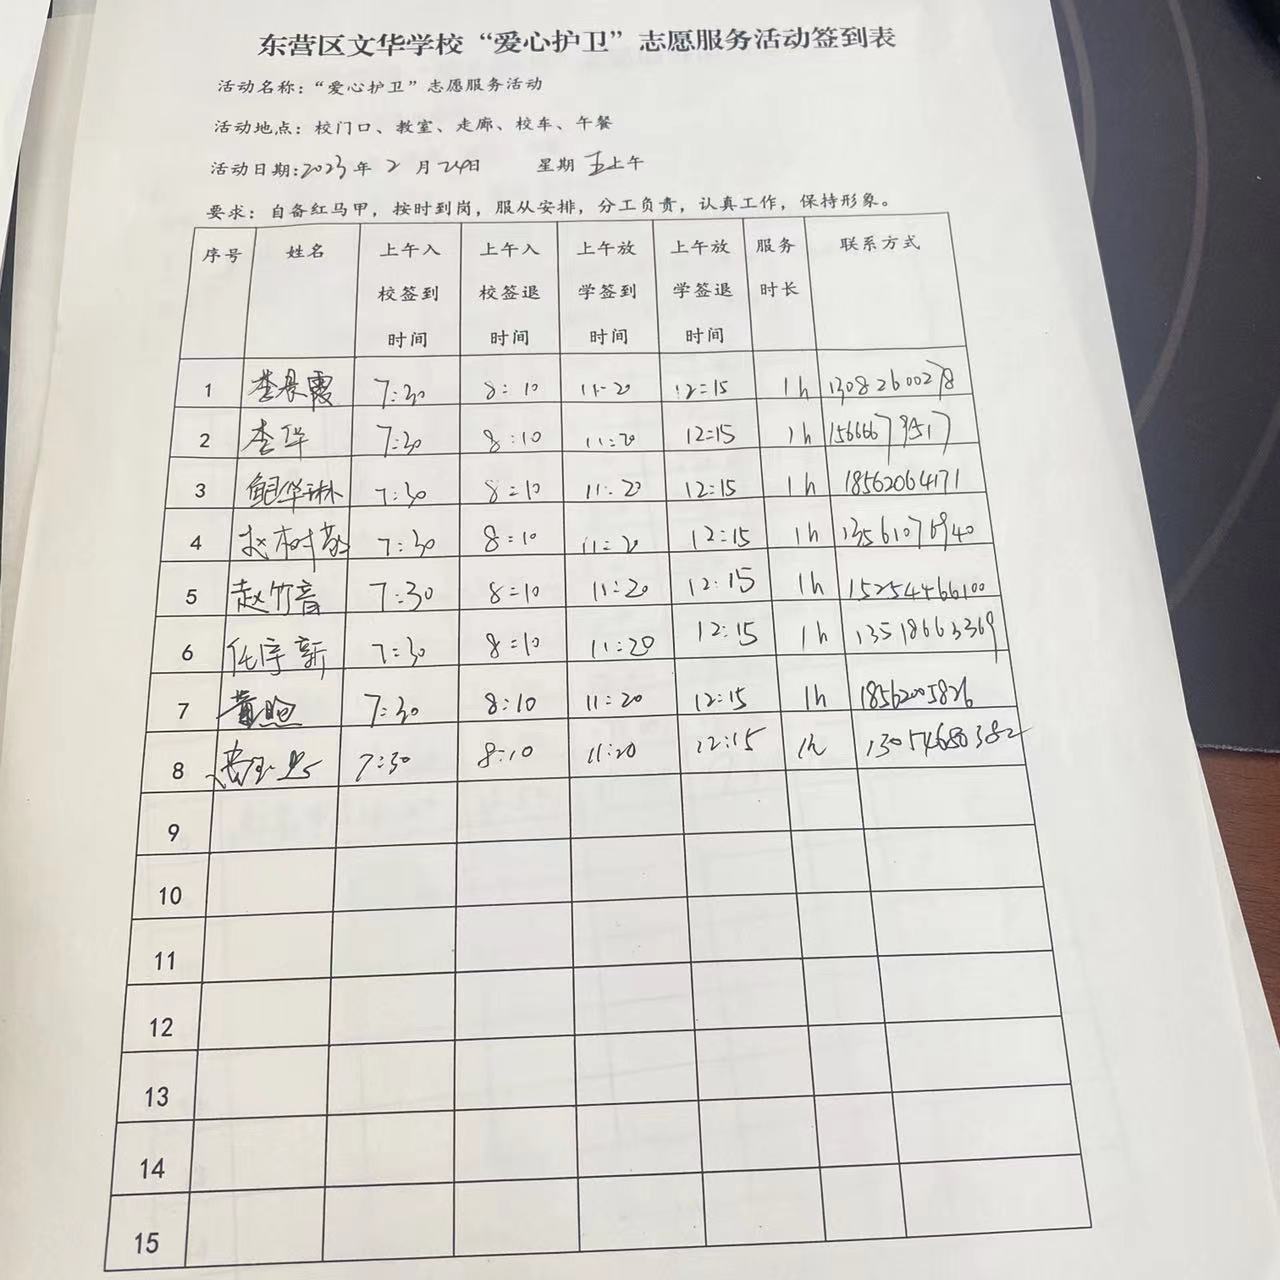 东营区文华学校“爱心护卫”志愿服务活动签到表
活动名称：“爱心护卫”志愿服务活动
活动地点：校门口、教室、走廊、校车、午餐
活动日期:2023年 2 月 24日 星期 五上午
要求：自备红马甲，按时到岗，服从安排，分工负责，认真工作，保持形象。
序号 姓名 上午入校签到时间 上午入校签退时间 上午放学签到时间 上午放学签退时间 服务时长 联系方式
1 7:30 8:10 11:20 12:15 1h 13082600278
2 李华 7:30 8:10 11:20 12:15 1h 15666679517
3 鲍华琳 7:30 8:10 11:20 12:15 1h 18562064171
4 7:30 8:10 11:20 12:15 1h 13561076940
5 赵竹音 7:30 8:10 11:20 12:15 1h 15254466100
6 任序新 7:30 8:10 11:20 12:15 1h 13518663369
7 7:30 8:10 11:20 12:15 1h 18562005826
8 7:30 8:10 11:20 12:15 1h
9
10
11
12
13
14
15